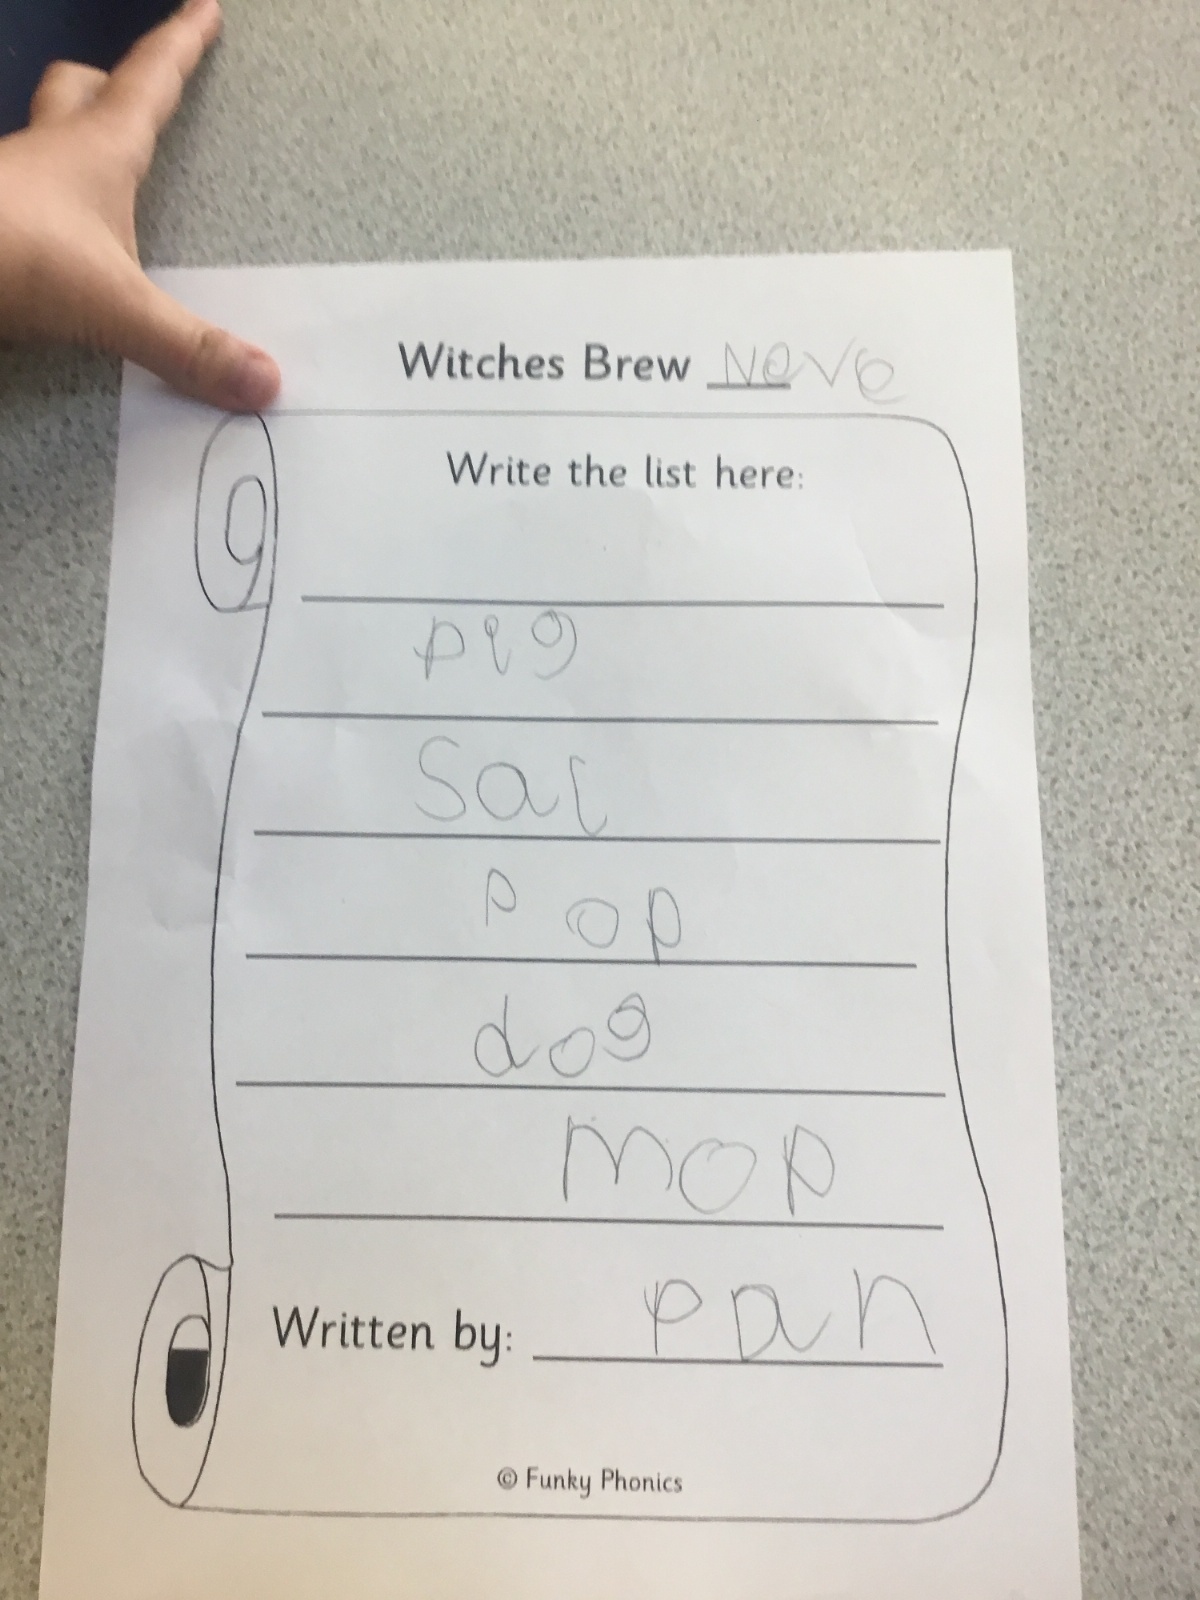 Witches Brew Neve
Write the list here:
pig
Sat
pop
dog
mop
Written by: pan
© Funky Phonics